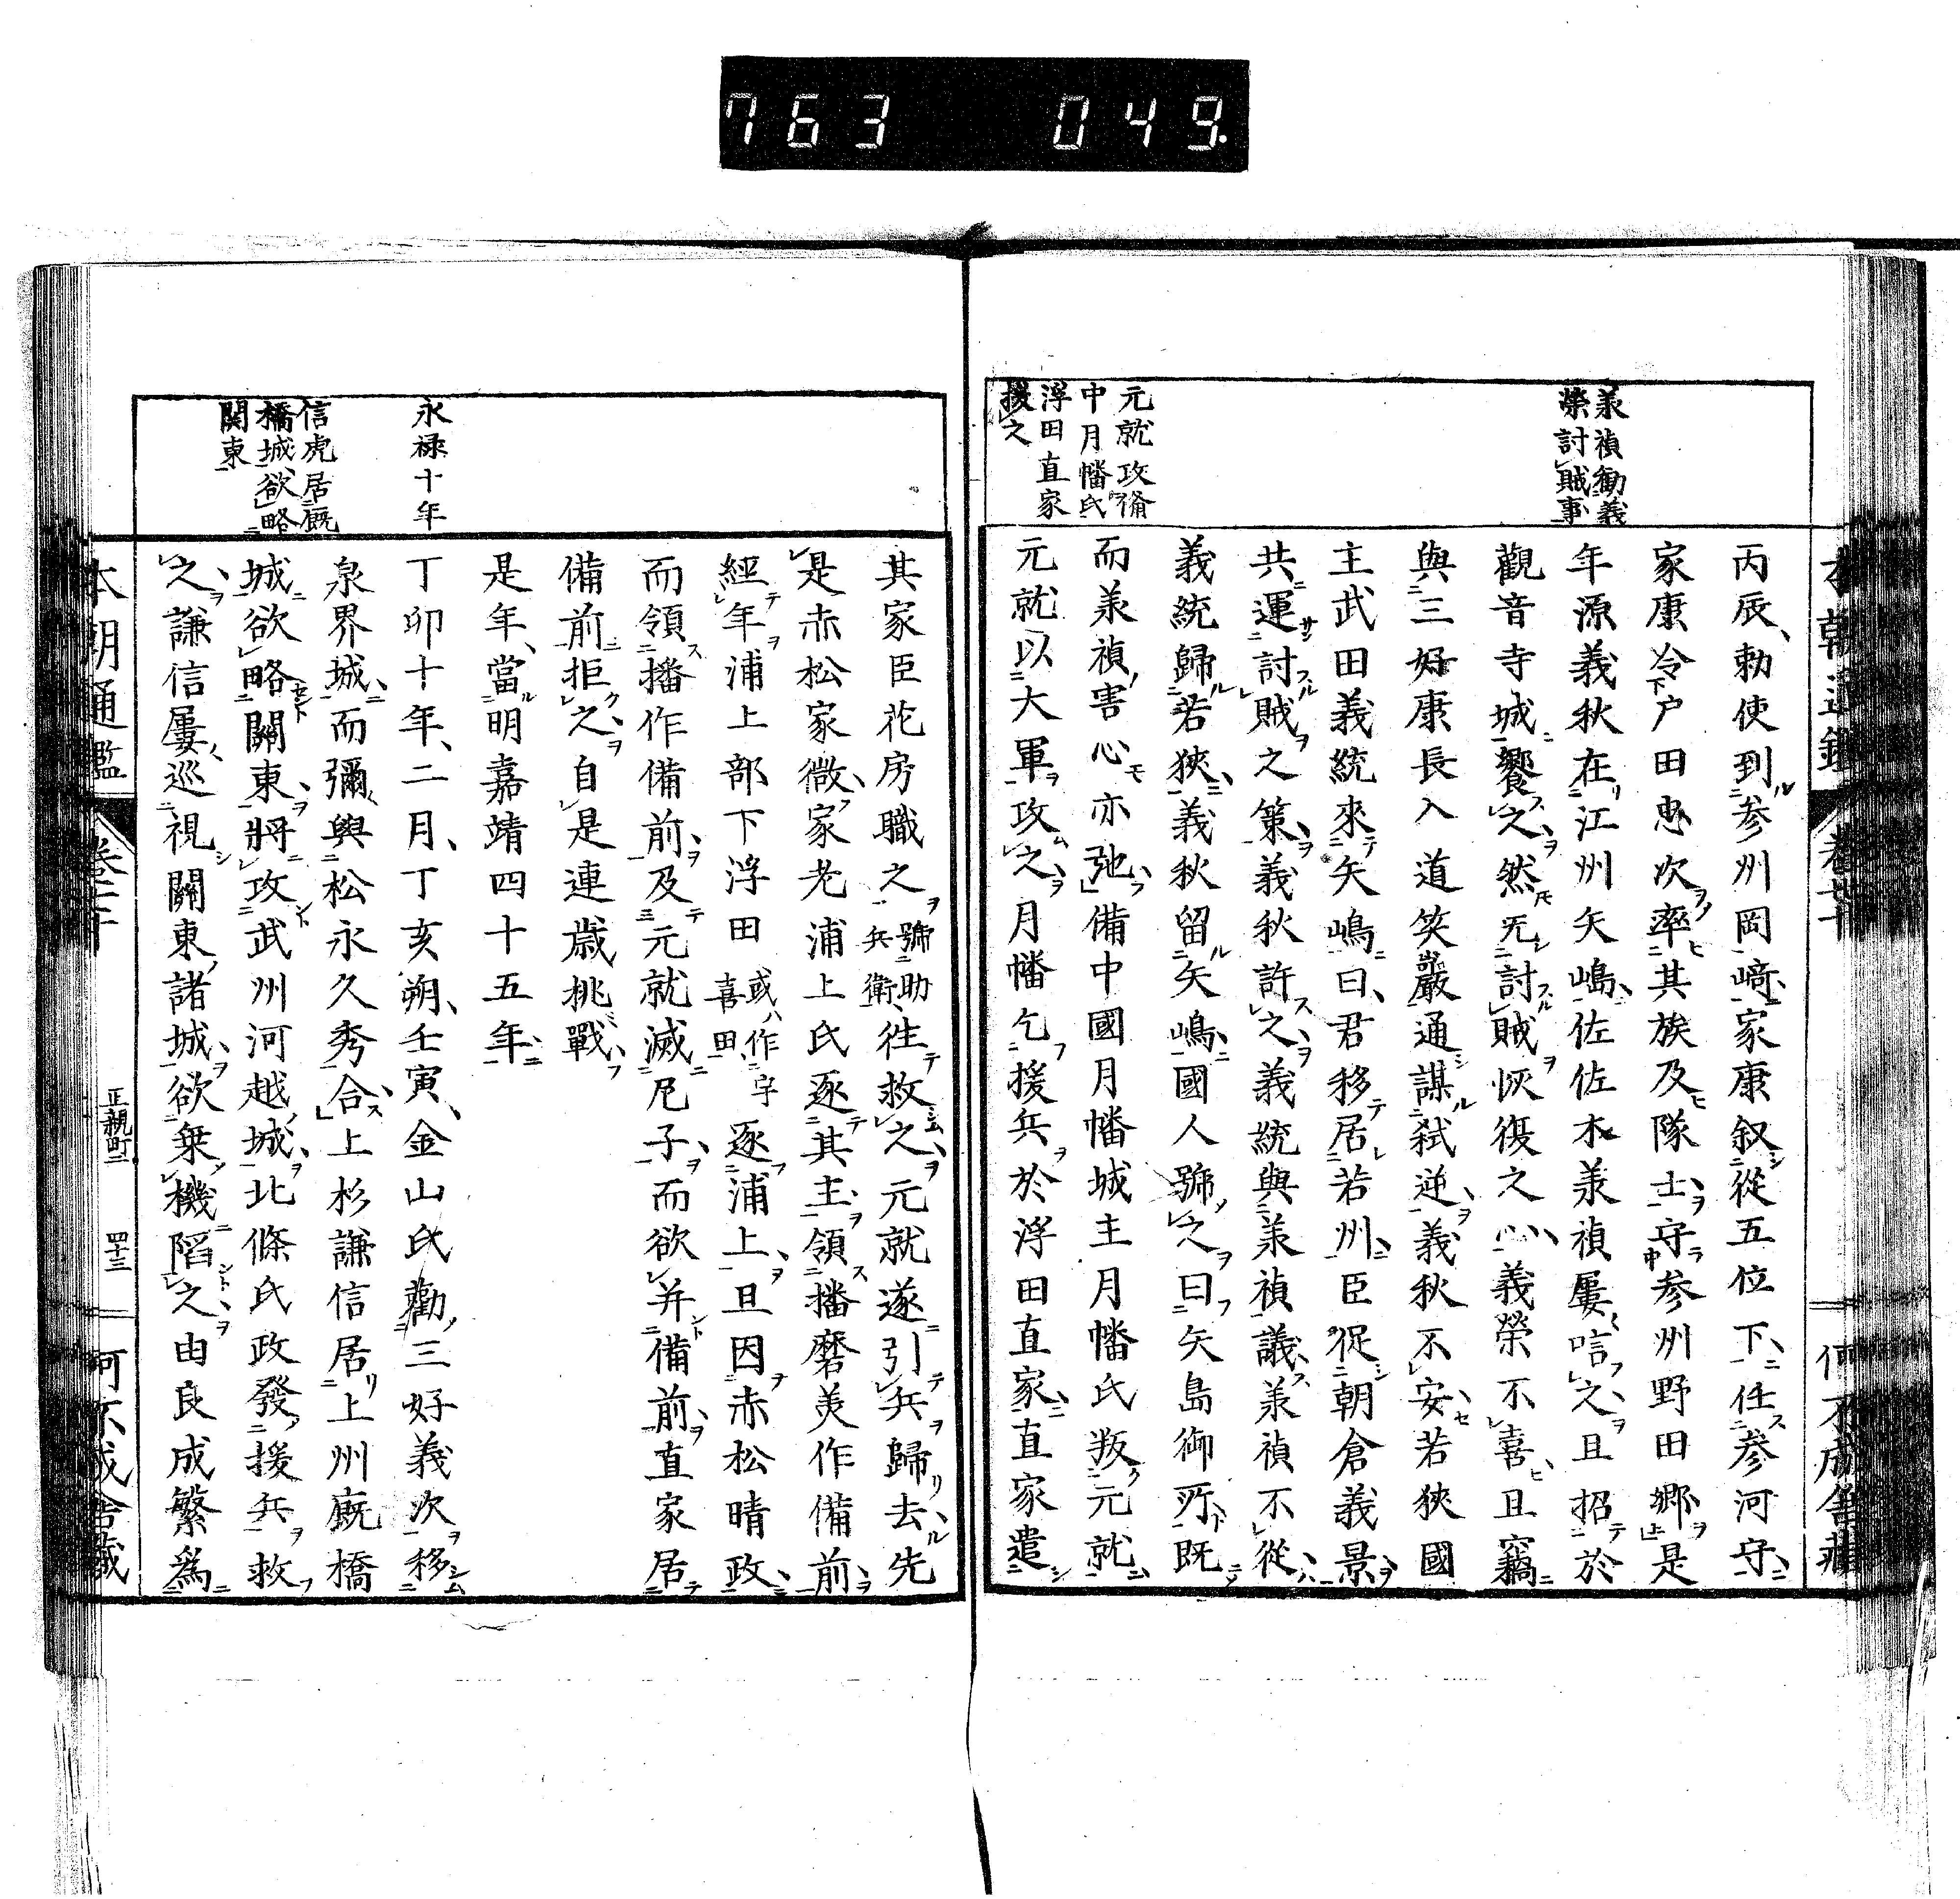 763 049.
本朝通鑑 卷廿 何不成舍藏
義禎勸義
榮討賊事
元就攻備
中月幡氏
浮田直家
援之
丙辰勅使到參州岡﨑家康叙從五位下任參河守
家康令戸田忠次率其族及隊士守參州野田郷是
年源義秋在江州矢嶋佐佐木義禎屢唁之且招於
觀音寺城饗之然无討賊恢復之心義榮不喜且竊
與三好康長入道笑嚴通謀弑逆義秋不安若狹國
主武田義統來矢嶋曰君移居若州臣促朝倉義景
共運討賊之策義秋許之義統與義禎議義禎不從
義統歸若狹義秋留矢嶋國人號之曰矢島御所既
而義禎害心亦弛備中國月幡城主月幡氏叛元就
元就以大軍攻之月幡乞援兵於浮田直家直家遣
其家臣花房職之號助兵衛往救之元就遂引兵歸去先
是赤松家微家老浦上氏逐其主領播磨美作備前
經年浦上部下浮田或作宇喜田逐浦上且因赤松晴政
而領播作備前及元就滅尼子而欲并備前直家居
備前拒之自是連歲挑戰
是年當明嘉靖四十五年
永禄十年
丁卯十年二月丁亥朔壬寅金山氏勸三好義次移
泉界城而彌與松永久秀合上杉謙信居上州廐橋
城欲略關東將攻武州河越城北條氏政發援兵救
之謙信屢巡視關東諸城欲乗機陷之由良成繁爲
信虎居厩
橋城欲略
関東
本朝通鑑 正親町二 四十三 何不成舍藏